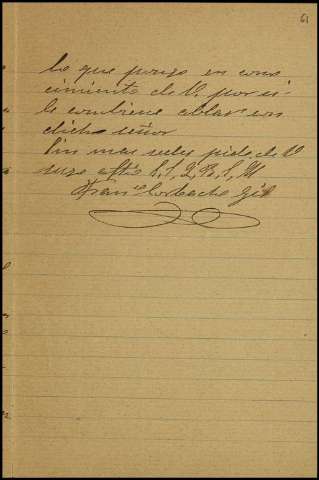 61
lo que pongo en cono
cimiento de V. por si
le combiene ablar con
dicho señor
Sin mas se des pide de V
suyo afto S, S, Q, B, S, M
Fran.co Corbacho Gil